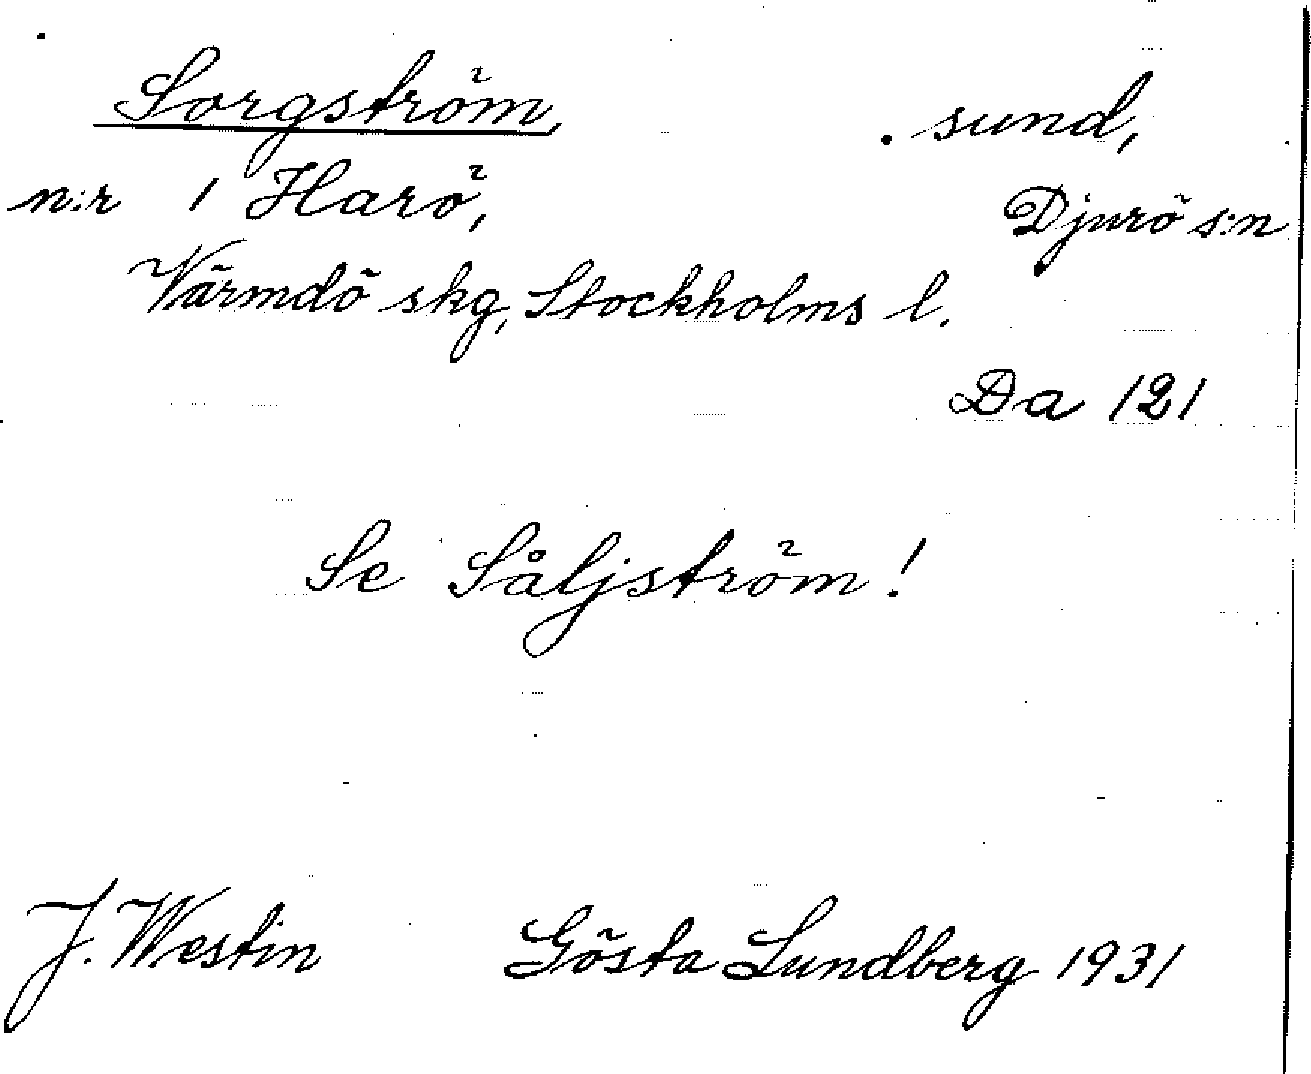 Sorgström, sund,
n:r 1 Harö, Djurö s:n
Värmdö skg, Stockholms l.
Da 121
Se Såljström!
J. Westin Gösta Lundberg 1931